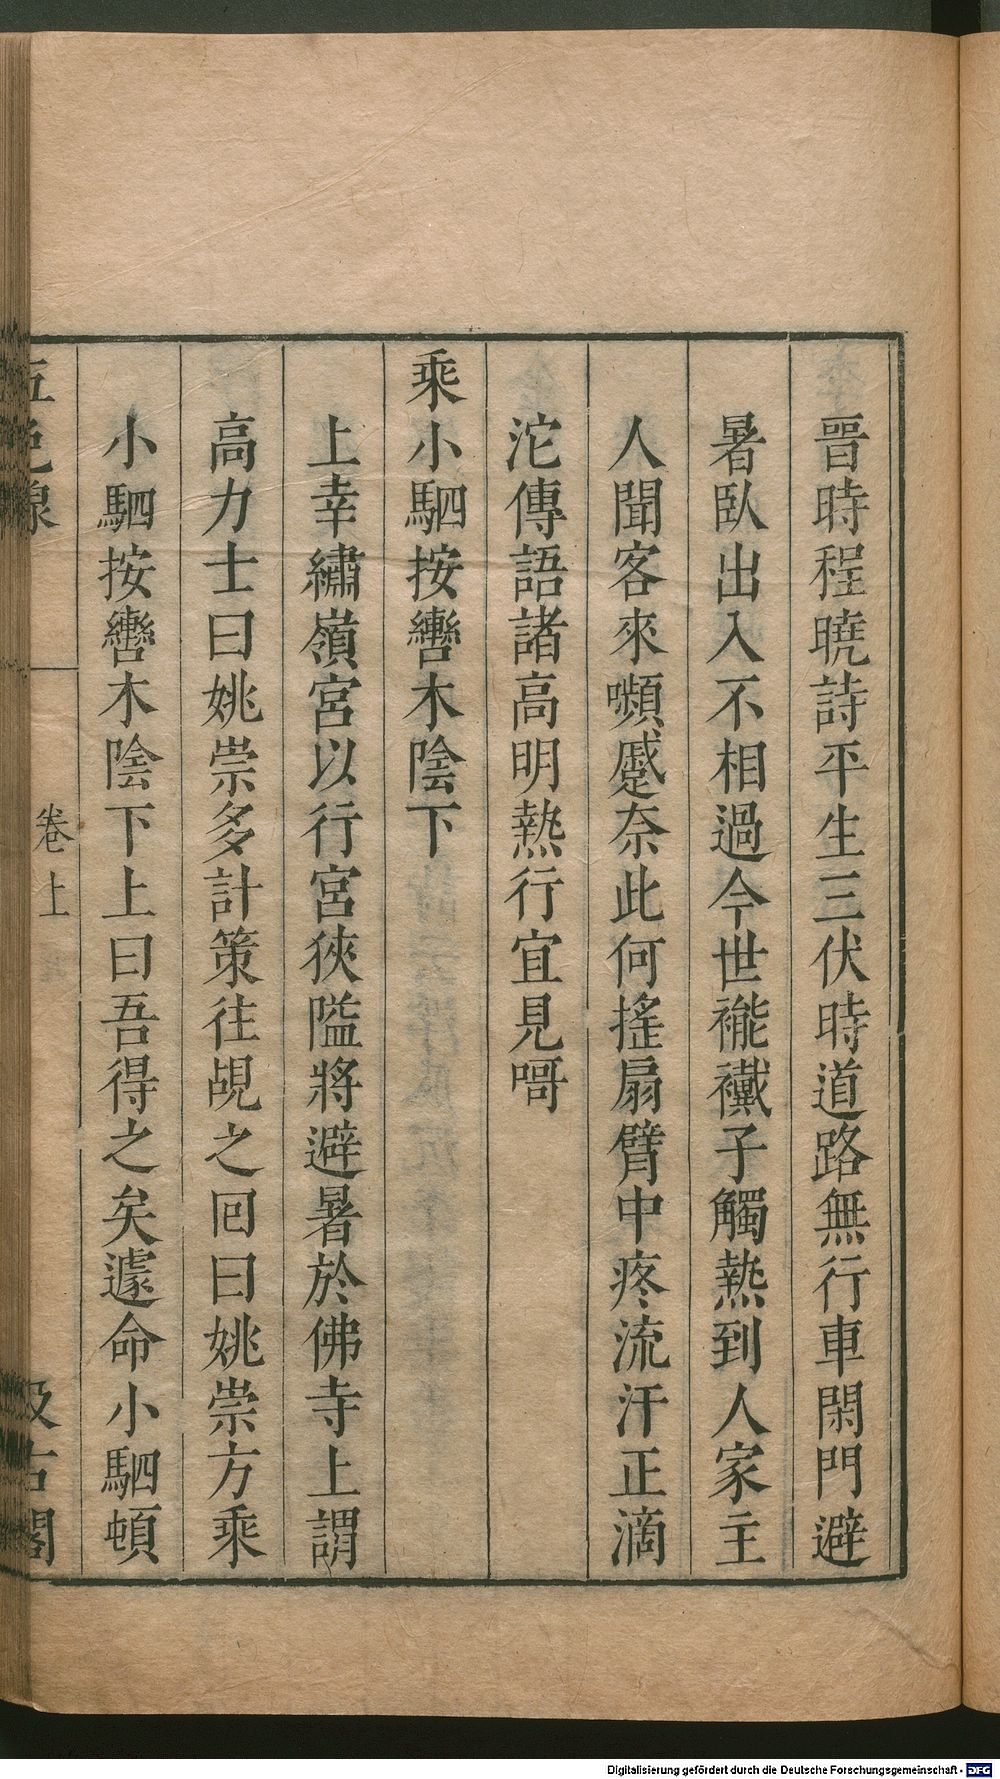 晉時程曉詩平生三伏時道路無行車閑門避
暑臥出入不相過今世褦襶子觸熱到人家主
人聞客來嚬蹙奈此何搖扇臂中疼流汗正滴
沱傳語諸高明熱行宜見呵
乘小駟按轡木陰下
上幸繡嶺宮以行宮狹隘將避暑於佛寺上謂
高力士曰姚崇多計策往覘之回曰姚崇方乘
小駟按轡木陰下上曰吾得之矣遽命小駟頓
五色線
卷上
汲古閣
Digitalisierung gefördert durch die Deutsche Forschungsgemeinschaft - DFG